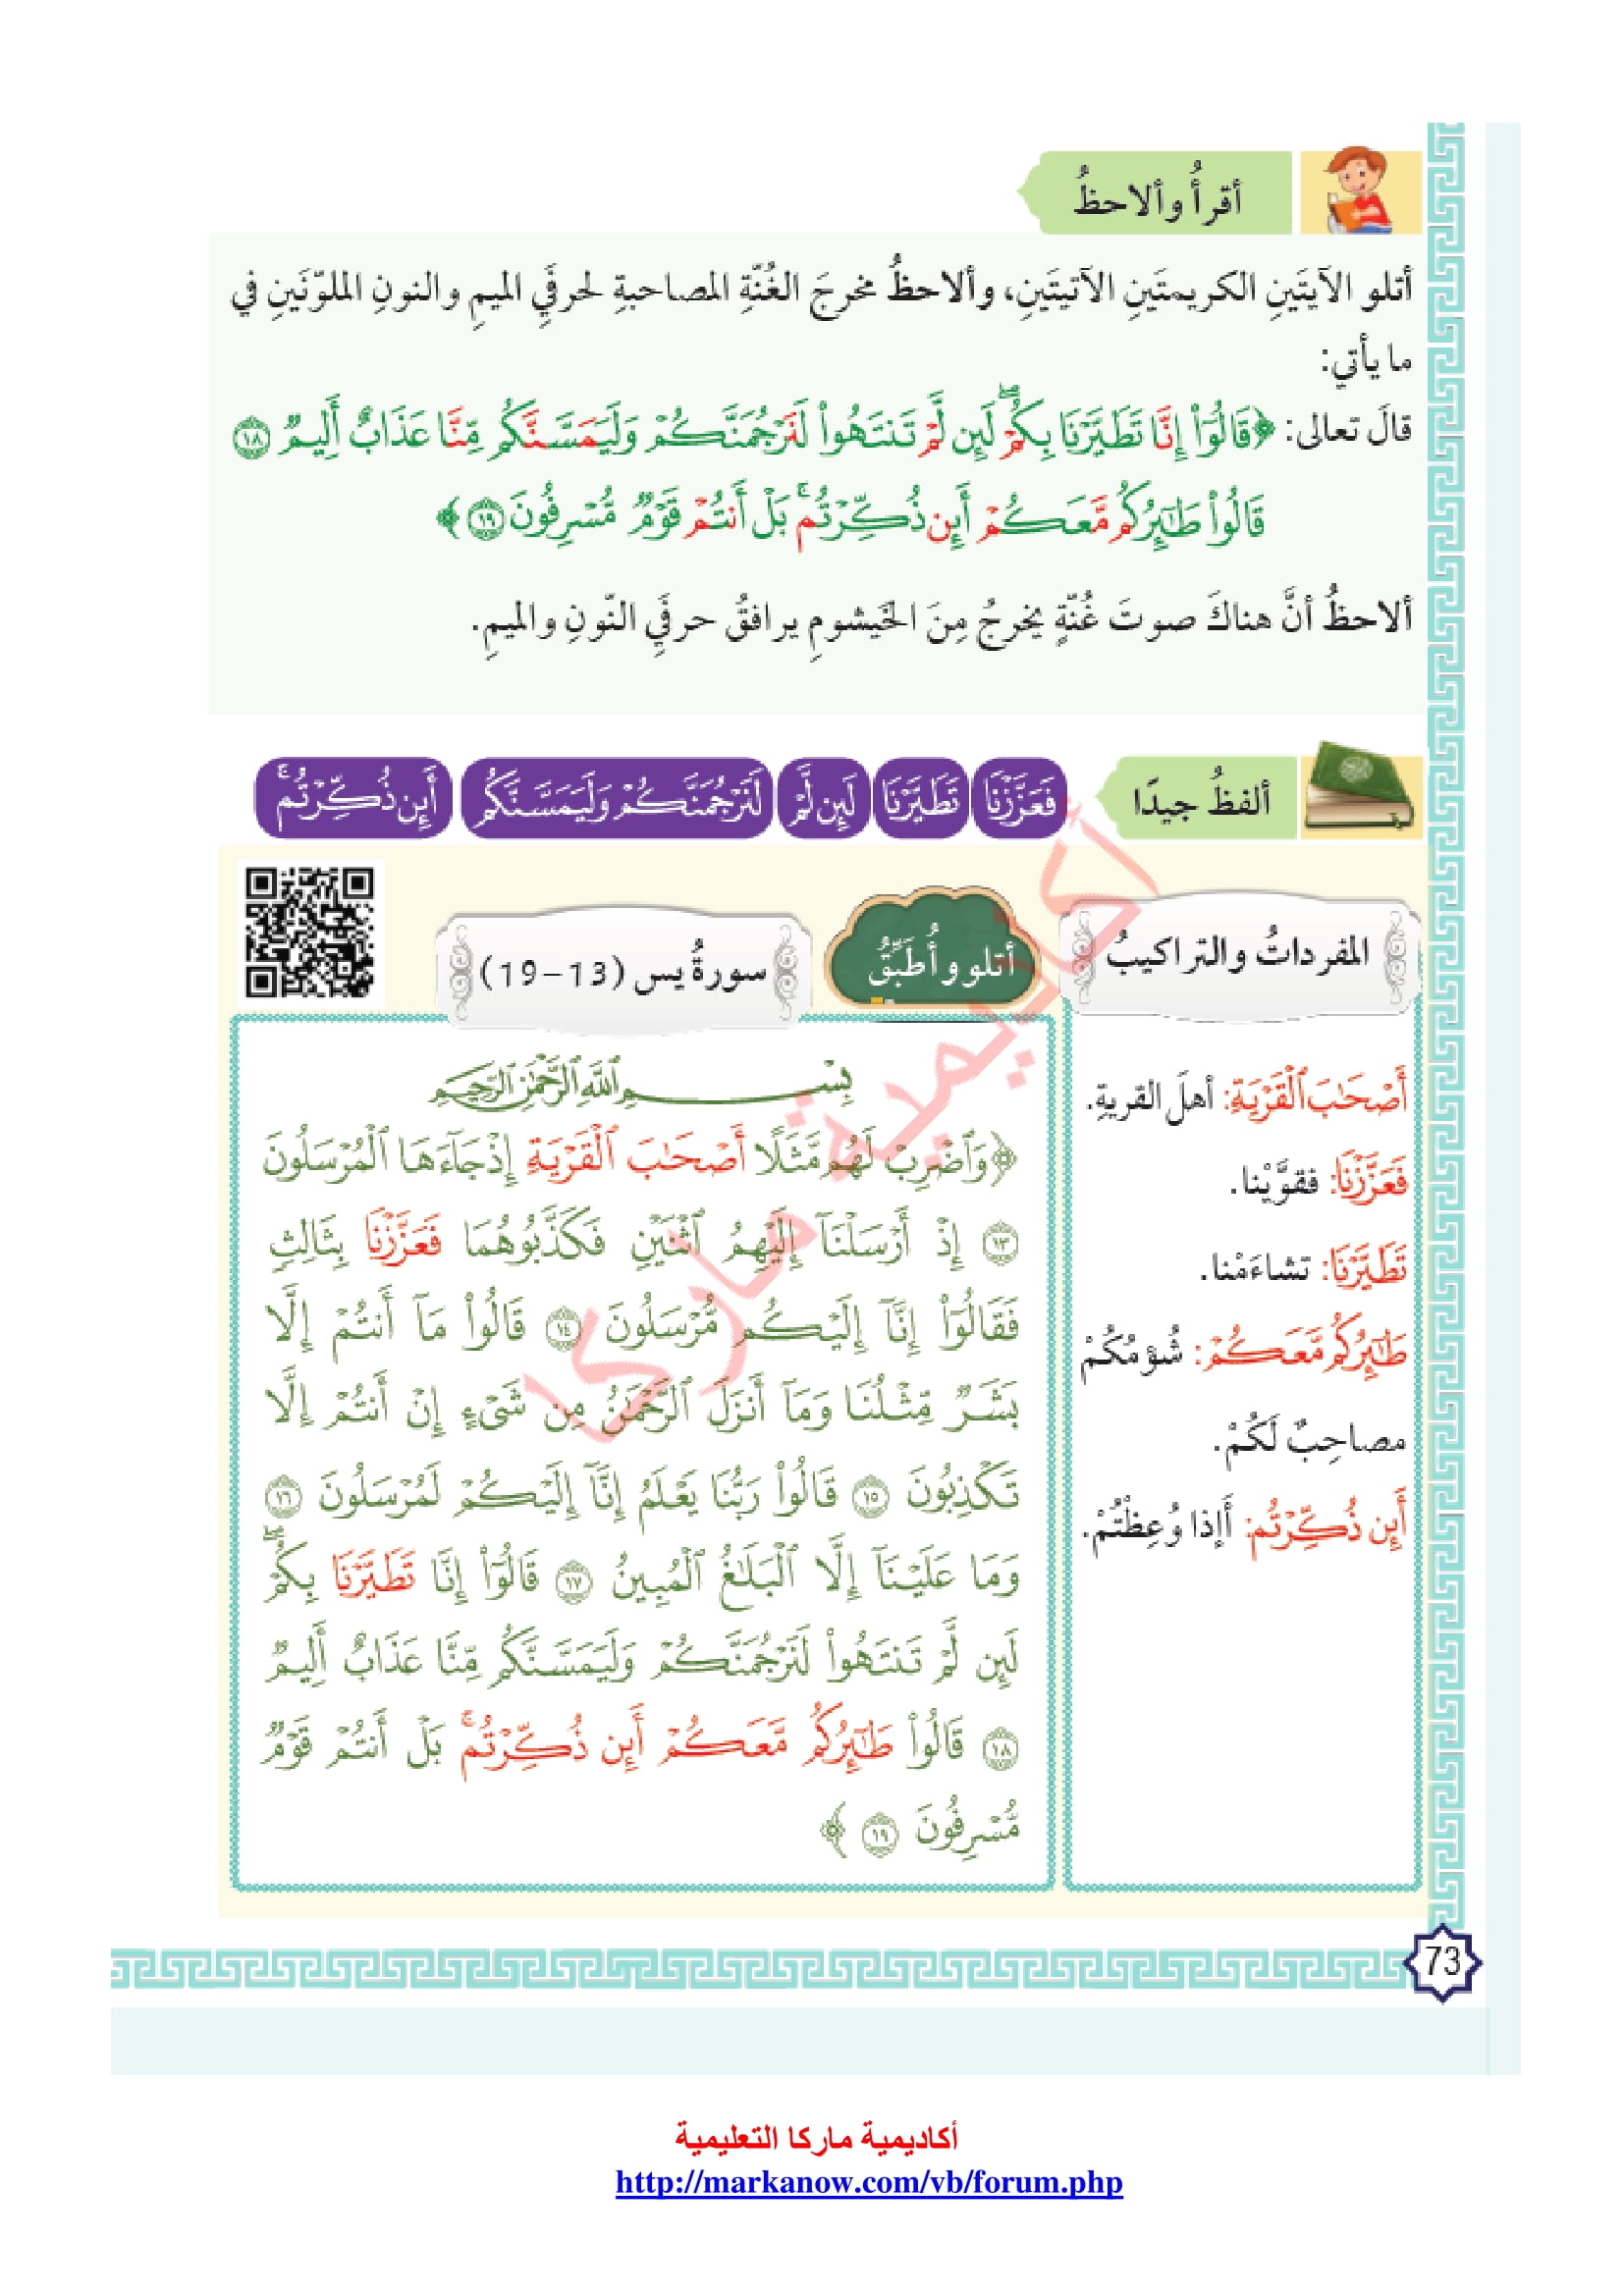 أقرأُ وألاحظُ
أتلو الآيتَينِ الكريمتَينِ الآتيتَينِ، وألاحظُ مخرجَ الغُنّةِ المصاحبةِ لحرفَيِ الميمِ والنونِ الملوّنَينِ في
ما يأتي:
قالَ تعالى: ﴿قَالُوٓاْ إِنَّا تَطَيَّرۡنَا بِكُمۡۖ لَئِن لَّمۡ تَنتَهُواْ لَنَرۡجُمَنَّكُمۡ وَلَيَمَسَّنَّكُم مِّنَّا عَذَابٌ أَلِيمٞ ١٨
قَالُواْ طَـٰٓئِرُكُم مَّعَكُمۡ أَئِن ذُكِّرۡتُمۚ بَلۡ أَنتُمۡ قَوۡمٞ مُّسۡرِفُونَ ١٩﴾
ألاحظُ أنَّ هناكَ صوتَ غُنّةٍ يخرجُ مِنَ الخَيشومِ يرافقُ حرفَيِ النّونِ والميمِ.
ألفظُ جيدًا
فَعَزَّزۡنَا
تَطَيَّرۡنَا
لَئِن لَّمۡ
لَنَرۡجُمَنَّكُمۡ وَلَيَمَسَّنَّكُم
أَئِن ذُكِّرۡتُمۚ
المفرداتُ والتراكيبُ
أَصۡحَـٰبَ ٱلۡقَرۡيَةِ: أهلَ القريةِ.
فَعَزَّزۡنَا: فقوَّيْنا.
تَطَيَّرۡنَا: تشاءَمْنا.
طَـٰٓئِرُكُم مَّعَكُمۡ: شُؤمُكُمْ
مصاحِبٌ لَكُمْ.
أَئِن ذُكِّرۡتُم: أَإذا وُعِظْتُمْ.
أتلو وأُطَبِّقُ
سورةُ يس (13-19)
بِسۡمِ ٱللَّهِ ٱلرَّحۡمَـٰنِ ٱلرَّحِيمِ
﴿وَٱضۡرِبۡ لَهُم مَّثَلًا أَصۡحَـٰبَ ٱلۡقَرۡيَةِ إِذۡ جَآءَهَا ٱلۡمُرۡسَلُونَ
١٣ إِذۡ أَرۡسَلۡنَآ إِلَيۡهِمُ ٱثۡنَيۡنِ فَكَذَّبُوهُمَا فَعَزَّزۡنَا بِثَالِثٖ
فَقَالُوٓاْ إِنَّآ إِلَيۡكُم مُّرۡسَلُونَ ١٤ قَالُواْ مَآ أَنتُمۡ إِلَّا
بَشَرٞ مِّثۡلُنَا وَمَآ أَنزَلَ ٱلرَّحۡمَـٰنُ مِن شَيۡءٍ إِنۡ أَنتُمۡ إِلَّا
تَكۡذِبُونَ ١٥ قَالُواْ رَبُّنَا يَعۡلَمُ إِنَّآ إِلَيۡكُمۡ لَمُرۡسَلُونَ ١٦
وَمَا عَلَيۡنَآ إِلَّا ٱلۡبَلَـٰغُ ٱلۡمُبِينُ ١٧ قَالُوٓاْ إِنَّا تَطَيَّرۡنَا بِكُمۡۖ
لَئِن لَّمۡ تَنتَهُواْ لَنَرۡجُمَنَّكُمۡ وَلَيَمَسَّنَّكُم مِّنَّا عَذَابٌ أَلِيمٞ
١٨ قَالُواْ طَـٰٓئِرُكُم مَّعَكُمۡ أَئِن ذُكِّرۡتُمۚ بَلۡ أَنتُمۡ قَوۡمٞ
مُّسۡرِفُونَ ١٩﴾
أكاديمية ماركا
73
أكاديمية ماركا التعليمية
http://markanow.com/vb/forum.php